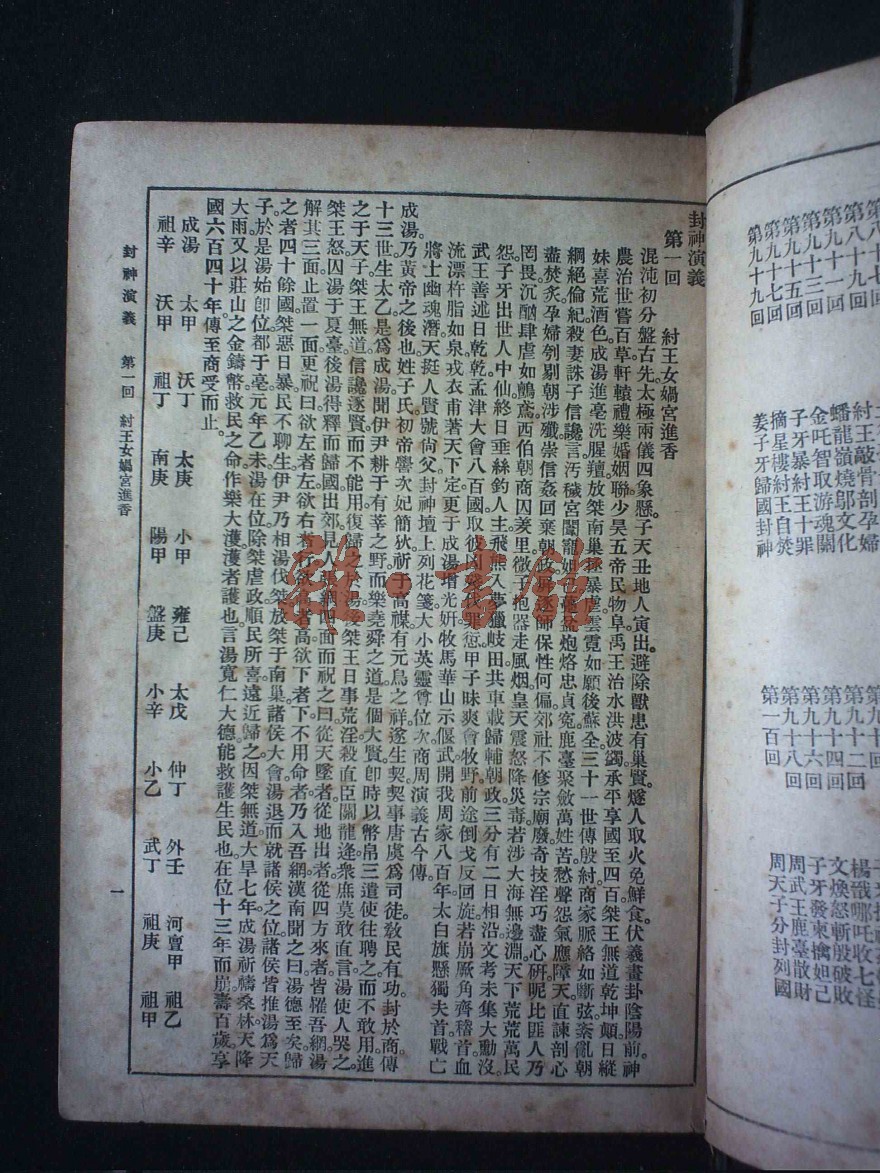 第八十九回　紂王敲骨剖孕婦　第九十回
第九十一回　蟠龍嶺燒鄔文化　第九十二回　楊戩哪吒收七怪
第九十三回　金吒智取游魂關　第九十四回　文煥怒斬殷破敗
第九十五回　子牙暴紂王十罪　第九十六回　子牙發柬擒妲己
第九十七回　摘星樓紂王自焚　第九十八回　周武王鹿臺散財
第九十九回　姜子牙歸國封神　第一百回　周天子分封列國
封神演義
第一回　紂王女媧宮進香
混沌初分盤古先。太極兩儀四象懸。子天丑地人演出。避除獸患有巢賢。燧人取火免鮮食。伏羲畫卦陰陽前。神
農治世嘗百草。軒轅禮樂婚姻聯。少昊五帝民物阜。禹王治水洪波蠲。承平享國至四百。桀王無道乾坤顛。日縱
妹喜荒酒色。成湯進亳洗腥羶。放桀南巢拯暴虐。雲霓如願後蘇全。三十一世傳殷紂。商家脈絡如斷弦。紊亂朝
綱絕倫紀。殺妻誅子信讒言。汚穢宮闈寵妲己。蠆盆炮烙忠貞寃。鹿臺聚斂萬姓苦。愁聲怨氣應障天。直諫剖心
盡焚炙。孕婦刳剔朝涉殲。崇信姦回棄朝政。屏逐師保性何偏。郊社不修宗廟廢。奇技淫巧盡心硏。昵比匪人乃
罔畏。沉酗肆虐如鸇鳶。西伯朝商囚羑里。微子抱器走風烟。皇天震怒降災毒。若涉大海無邊淵。天下荒荒萬民
怨。子牙出世人中仙。終日垂絲釣人主。飛熊入夢獵岐田。共車載歸輔朝政。三分有二日相沿。文考未集大勳沒。
武王善述日乾乾。孟津大會八百國。取彼凶殘伐罪愆。甲子昧爽會牧野。前途倒戈反回旋。若崩厥角齊稽首。血
流漂杵脂如泉。戎衣甫著天下定。更于成湯增光姸。牧馬華山示偃武。開我周家八百年。太白旗懸獨夫首。戰亡
將士幽魂潛。天挺人賢號尙父。封神壇上列花箋。大小英靈尊位次。商周演義古今傳。
成湯。乃黃帝之後也。姓子氏。初帝嚳次妃簡狄祈于高禖。有元鳥之祥。遂生契。契事唐虞爲司徒。敎民有功。封於商。傳
十三世。生太乙。是爲成湯。聞伊尹耕于有莘之野。而樂堯舜之道。是個大賢。卽時以幣帛三遣使往聘之。而不敢用。進
之于天子。桀王無道。信讒逐賢。而不能用。復歸之於湯。桀王日事荒淫。殺直臣關龍逄。衆庶莫敢直言。湯使人哭之。
桀王怒。囚湯于夏臺。後湯得釋而歸國。出郊。見人張網四面而祝之曰。從天墜者。從地出者。從四方來者。皆罹吾網。湯
解其三面。止置一面。更祝曰。欲左者左。欲右者右。欲高者高。欲下者下。不用命者。乃入吾網。漢南聞之曰。湯德至矣。歸
之者四十餘國。桀惡日暴。民不聊生。伊尹乃相湯伐桀。放桀于南巢。諸侯大會。湯退而就諸侯之位。諸侯皆推湯爲天
子。於是湯始卽位。都于亳。元年乙未。湯在位。除桀虐政。順民所喜。遠近歸之。因桀無道。大旱七年。成湯祈禱桑林。天降
大雨。又以莊山之金鑄幣。救民之命。作樂大濩。濩者護也。言湯寬仁大德。能救護生民也。在位十三年而崩。壽百歲。享
國六百四十年。傳至商受而止。
成湯　太甲　沃丁　太庚　小甲　雍己　太戊　仲丁　外壬　河亶甲　祖乙
祖辛　沃甲　祖丁　南庚　陽甲　盤庚　小辛　小乙　武丁　祖庚　祖甲
封神演義　第一回　紂王女媧宮進香　一
雜·書館